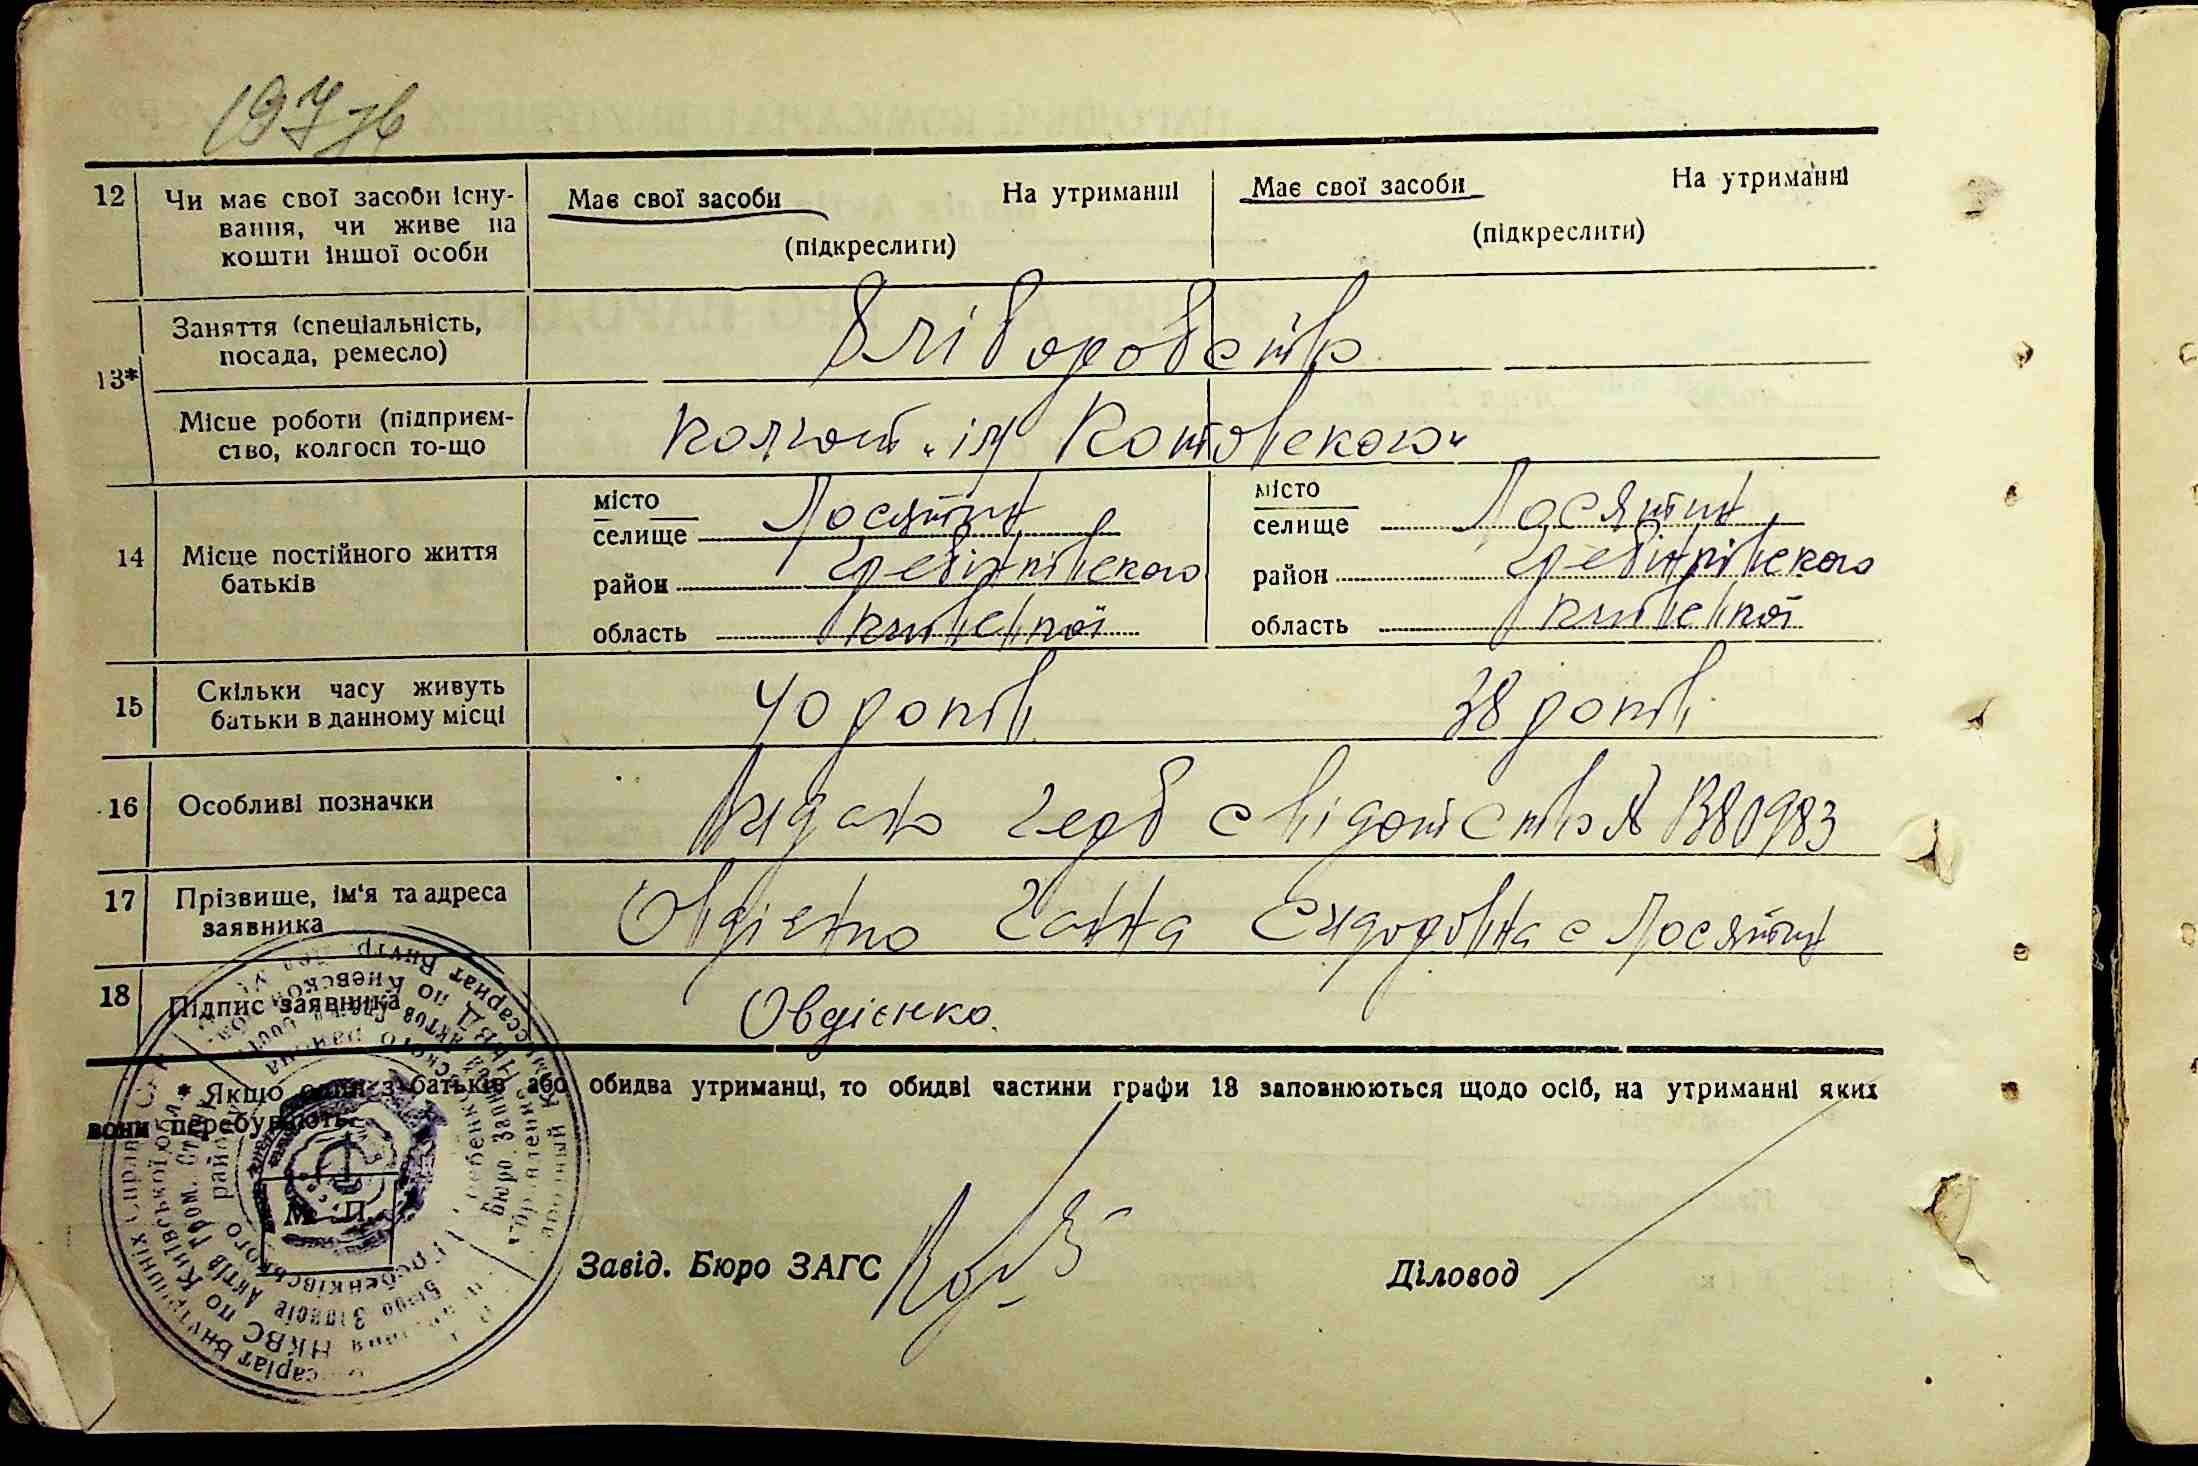 197 зв
12 Чи має свої засоби існу-
вання, чи живе на
кошти іншої особи
Має свої засоби На утриманні
(підкреслити)
Має свої засоби На утриманні
(підкреслити)
13* Заняття (спеціальність,
посада, ремесло)
Хліборобство
Місце роботи (підприєм-
ство, колгосп то-що
Колгосп „ім Котовського"
14 Місце постійного життя
батьків
місто
селище Лосятин
район Гребінківского
область Київської
місто
селище Лосятин
район Гребінківского
область Київської
15 Скільки часу живуть
батьки в данному місці
40 років 38 років
16 Особливі позначки
Видано герб свідотство № В80983
17 Прізвище, ім'я та адреса
заявника
Овдієнко Ганна Сидоровна с Лосятин
18 Підпис заявника
Овдієнко.
* Якщо один з батьків або обидва утриманці, то обидві частини графи 13 заповнюються щодо осіб, на утриманні яких
вони перебувають.
М. П.
Завід. Бюро ЗАГС
Діловод